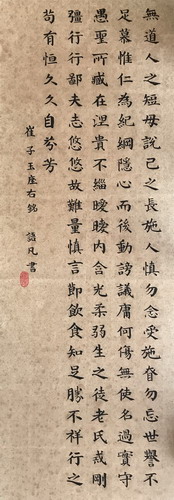 無道人之短毋說己之長施人慎勿念受施眘勿忘世譽不
足慕惟仁為紀綱隱心而後動謗議庸何傷無使名過實守
愚聖所臧在涅貴不緇曖曖內含光柔弱生之徒老氏戒剛
彊行行鄙夫志悠悠故難量慎言節飲食知足勝不祥行之
苟有恒久久自芬芳
崔子玉座右銘 凡書